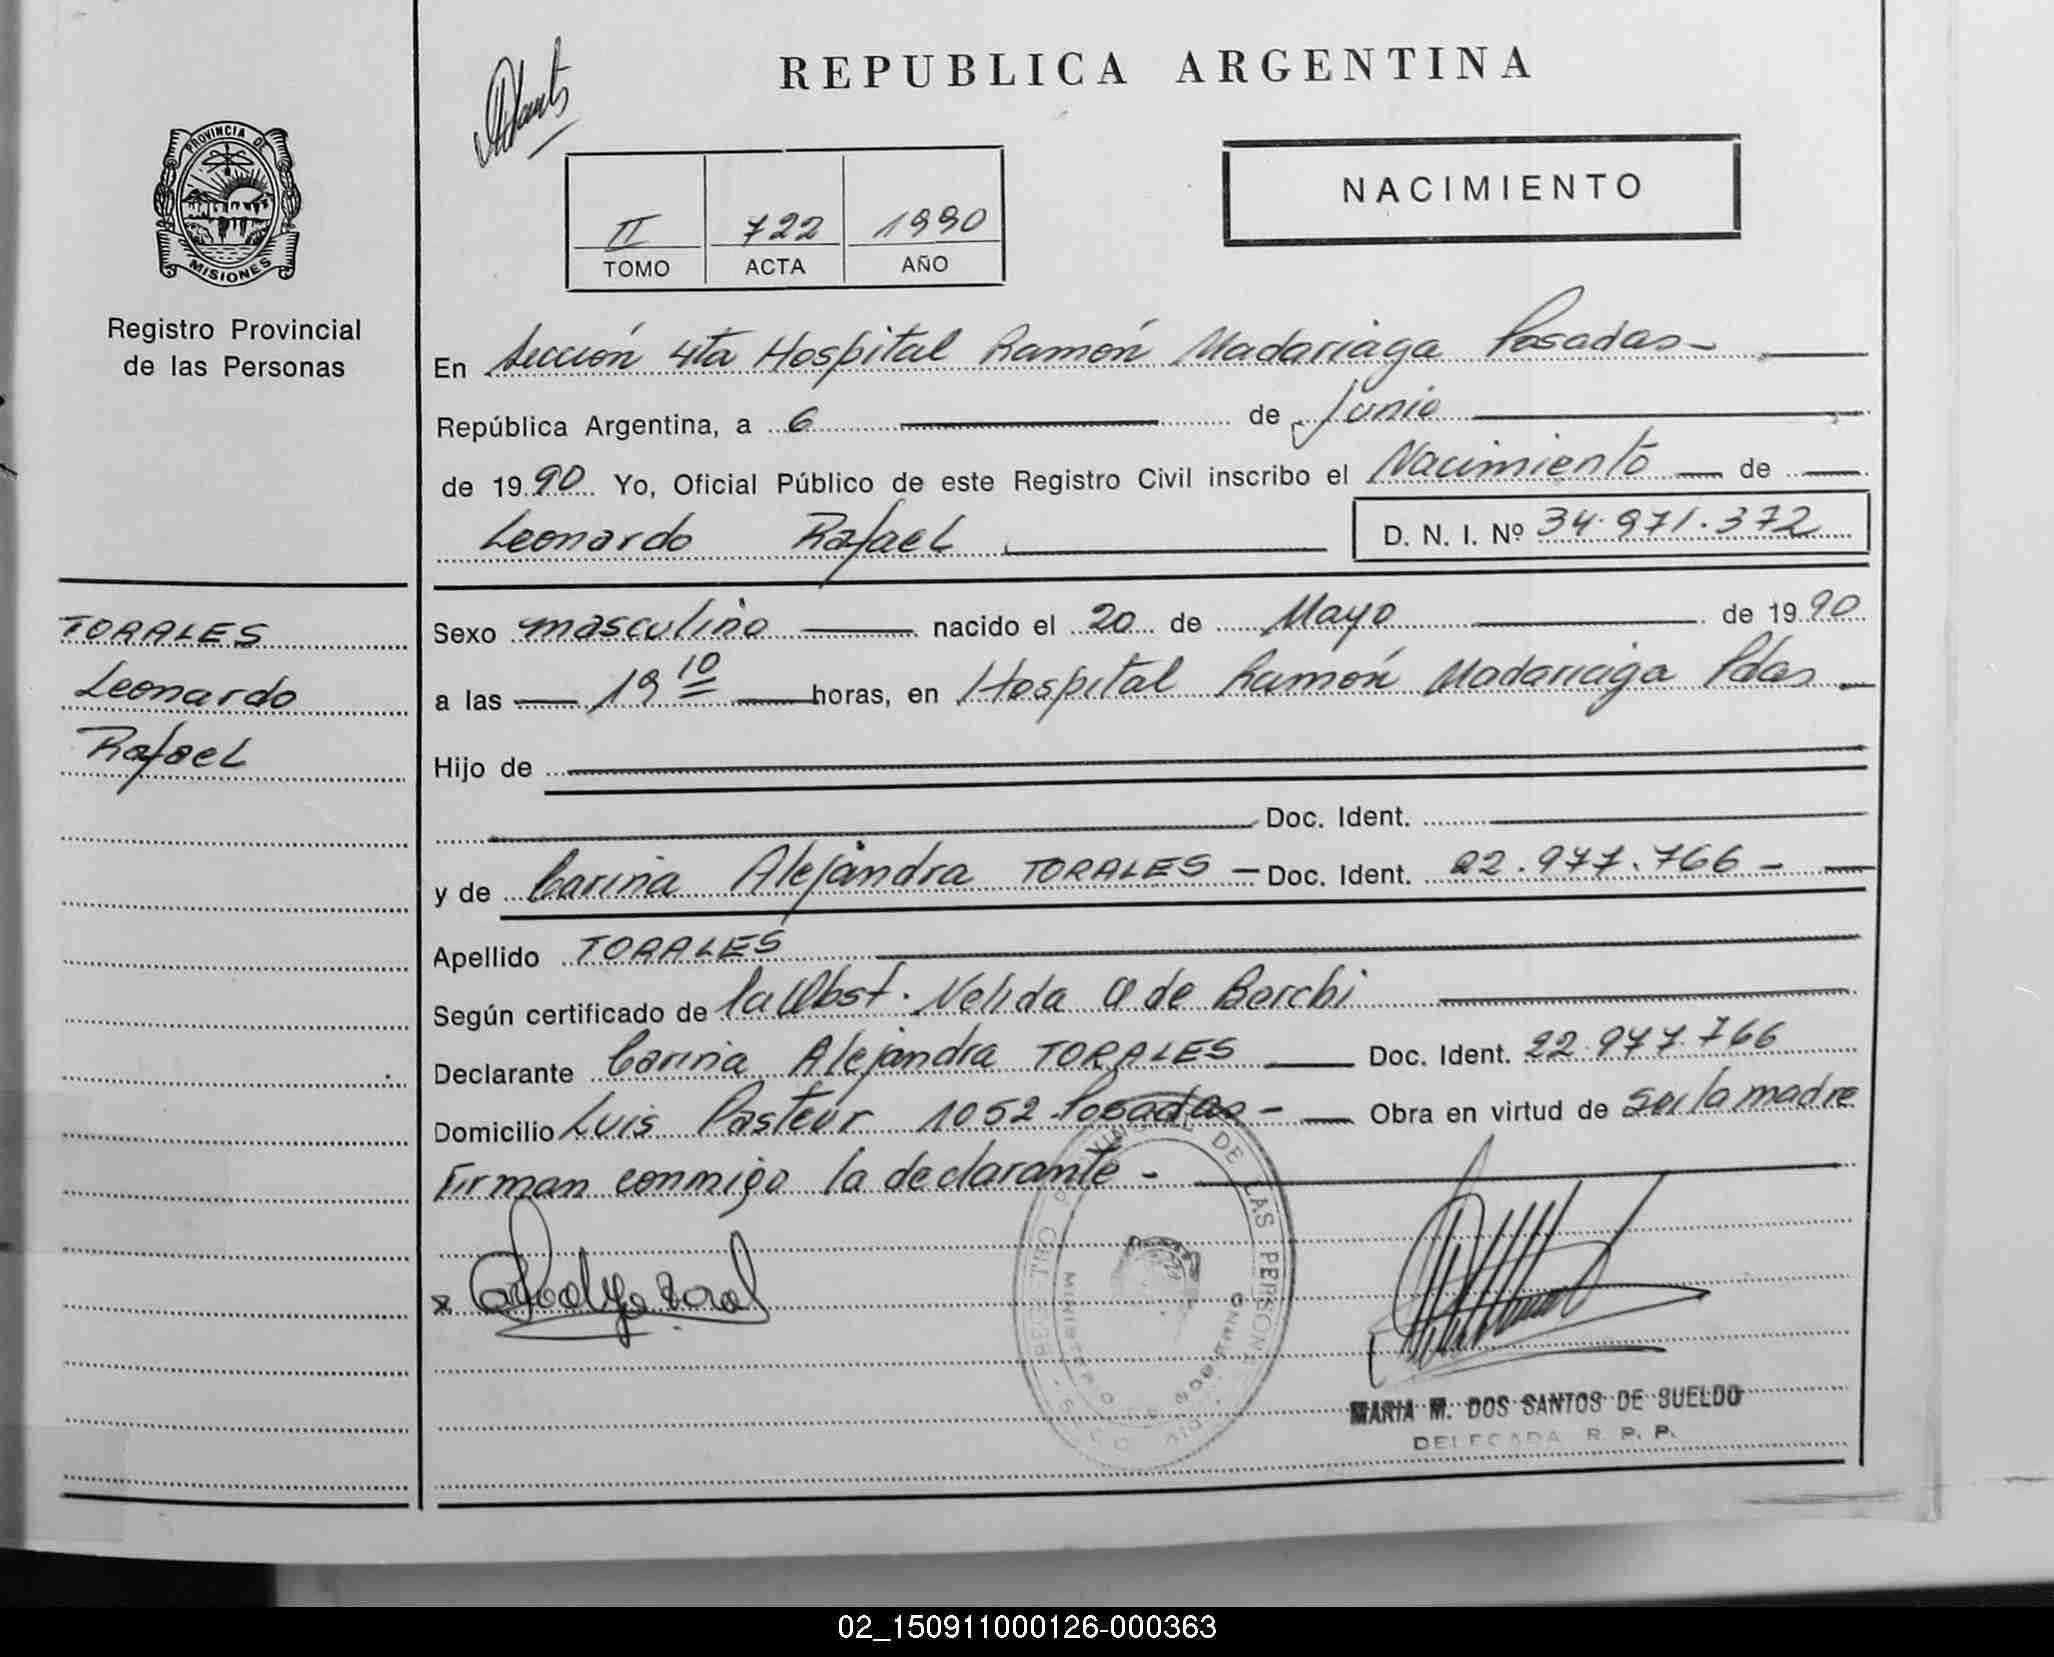 REPUBLICA ARGENTINA
PROVINCIA DE
MISIONES
Registro Provincial
de las Personas
NACIMIENTO
II 722 1990
TOMO ACTA AÑO
En Sección 4ta Hospital Ramón Madariaga Posadas -
República Argentina, a 6 de Junio
de 1990 Yo, Oficial Público de este Registro Civil inscribo el Nacimiento de
Leonardo Rafael D. N. I. Nº 34.971.372
TORALES
Leonardo
Rafael
Sexo masculino nacido el 20 de Mayo de 1990
a las 19 10 horas, en Hospital Ramón Madariaga Pdas
Hijo de
Doc. Ident.
y de Carina Alejandra TORALES - Doc. Ident. 22.977.766 -
Apellido TORALES
Según certificado de la Obst. Nelida de Borchi
Declarante Carina Alejandra TORALES Doc. Ident. 22.977.766
Domicilio Luis Pasteur 1052 Posadas - Obra en virtud de ser la madre
Firman conmigo la declarante -
REGISTRO PROVINCIAL DE LAS PERSONAS
MINISTERIO DE GOBIERNO
MARIA M. DOS SANTOS DE SUELDO
DELEGADA R. P. P.
02_150911000126-000363